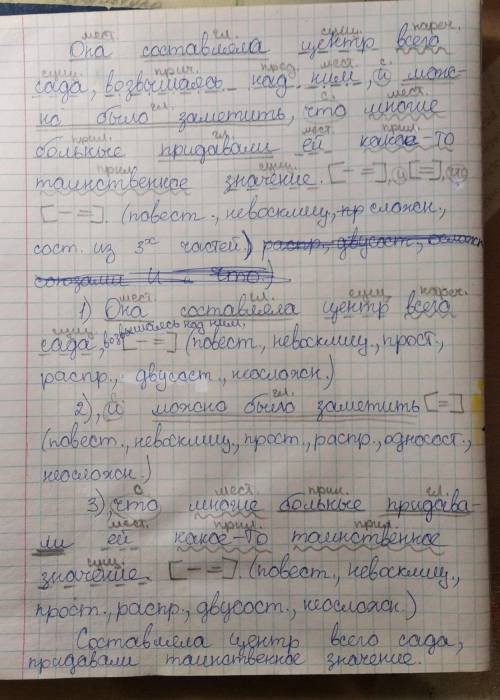 мест. гл. сущ. нареч.
Она составляла центр всего
сущ. прич. пред. мест. с.
сада, возвышаясь над ним, и мож-
гл. с. мест.
но было заметить, что многие
прил. гл. мест. прил.
больные придавали ей какое-то
прил. сущ.
таинственное значение. [- =], и [=], что
[- =]. (повест., невосклиц., пр сложн.,
сост. из 3х частей.) распр., двусост., ослож
союзами И и что.)
мест. гл. сущ. нареч.
1) Она составляла центр всего
сущ. возвышаясь над ним,
сада, [- =] (повест., невосклиц., прост.,
распр., двусост., неосложн.)
2), и можно было заметить [=]
(повест., невосклиц., прост., распр., односост.,
неосложн.)
с мест. прил. гл.
3), что многие больные придава-
мест. прил. прил.
ли ей какое-то таинственное
сущ.
значение. [- =]. (повест., невосклиц.,
прост., распр., двусост., неосложн.)
Составляла центр всего сада,
придавали таинственное значение.